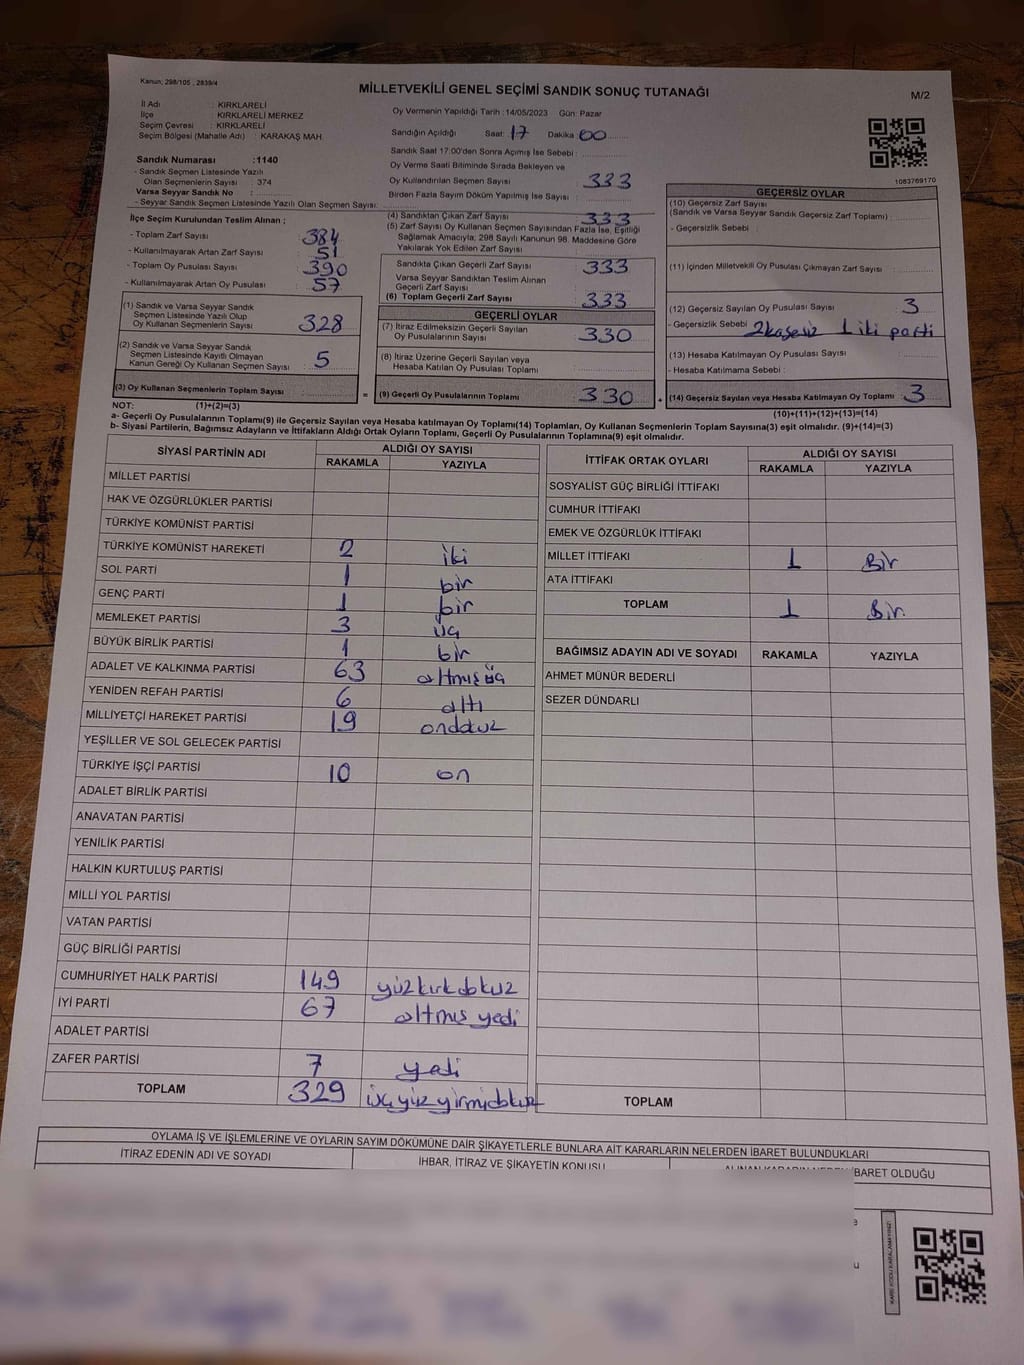 Kanun; 298/105 , 2839/4
MİLLETVEKİLİ GENEL SEÇİMİ SANDIK SONUÇ TUTANAĞI
M/2
İl Adı : KIRKLARELİ
İlçe : KIRKLARELİ MERKEZ
Seçim Çevresi : KIRKLARELİ
Seçim Bölgesi (Mahalle Adı) : KARAKAŞ MAH.
Sandık Numarası :1140
- Sandık Seçmen Listesinde Yazılı
Olan Seçmenlerin Sayısı : 374
Varsa Seyyar Sandık No :
- Seyyar Sandık Seçmen Listesinde Yazılı Olan Seçmen Sayısı:
İlçe Seçim Kurulundan Teslim Alınan ;
- Toplam Zarf Sayısı 384
- Kullanılmayarak Artan Zarf Sayısı 51
- Toplam Oy Pusulası Sayısı 390
- Kullanılmayarak Artan Oy Pusulası 57
(1) Sandık ve Varsa Seyyar Sandık
Seçmen Listesinde Yazılı Olup
Oy Kullanan Seçmenlerin Sayısı 328
(2) Sandık ve Varsa Seyyar Sandık
Seçmen Listesinde Kayıtlı Olmayan
Kanun Gereği Oy Kullanan Seçmen Sayısı 5
(3) Oy Kullanan Seçmenlerin Toplam Sayısı
Oy Vermenin Yapıldığı Tarih :14/05/2023 Gün: Pazar
Sandığın Açıldığı Saat: 17 Dakika 00
Sandık Saat 17:00'den Sonra Açımış İse Sebebi :
Oy Verme Saati Bitiminde Sırada Bekleyen ve
Oy Kullandırılan Seçmen Sayısı 333
Birden Fazla Sayım Döküm Yapılmış İse Sayısı :
(4) Sandıktan Çıkan Zarf Sayısı 333
(5) Zarf Sayısı Oy Kullanan Seçmen Sayısından Fazla İse, Eşitliği
Sağlamak Amacıyla; 298 Sayılı Kanunun 98. Maddesine Göre
Yakılarak Yok Edilen Zarf Sayısı
Sandıkta Çıkan Geçerli Zarf Sayısı 333
Varsa Seyyar Sandıktan Teslim Alınan
Geçerli Zarf Sayısı
(6) Toplam Geçerli Zarf Sayısı 333
GEÇERLİ OYLAR
(7) İtiraz Edilmeksizin Geçerli Sayılan
Oy Pusulalarının Sayısı 330
(8) İtiraz Üzerine Geçerli Sayılan veya
Hesaba Katılan Oy Pusulası Toplamı
= (9) Geçerli Oy Pusulalarının Toplamı 330
1083769170
GEÇERSİZ OYLAR
(10) Geçersiz Zarf Sayısı
(Sandık ve Varsa Seyyar Sandık Geçersiz Zarf Toplamı) :
- Geçersizlik Sebebi :
(11) İçinden Milletvekili Oy Pusulası Çıkmayan Zarf Sayısı
(12) Geçersiz Sayılan Oy Pusulası Sayısı 3
- Geçersizlik Sebebi : 2 kaşesiz 1 iki parti
(13) Hesaba Katılmayan Oy Pusulası Sayısı
- Hesaba Katılmama Sebebi :
+ (14) Geçersiz Sayılan veya Hesaba Katılmayan Oy Toplamı 3
NOT: (1)+(2)=(3)
(10)+(11)+(12)+(13)=(14)
a- Geçerli Oy Pusulalarının Toplamı(9) ile Geçersiz Sayılan veya Hesaba katılmayan Oy Toplamı(14) Toplamları, Oy Kullanan Seçmenlerin Toplam Sayısına(3) eşit olmalıdır. (9)+(14)=(3)
b- Siyasi Partilerin, Bağımsız Adayların ve İttifakların Aldığı Ortak Oyların Toplamı, Geçerli Oy Pusulalarının Toplamına(9) eşit olmalıdır.
SİYASİ PARTİNİN ADI ALDIĞI OY SAYISI
RAKAMLA YAZIYLA
MİLLET PARTİSİ
HAK VE ÖZGÜRLÜKLER PARTİSİ
TÜRKİYE KOMÜNİST PARTİSİ
TÜRKİYE KOMÜNİST HAREKETİ 2 iki
SOL PARTİ 1 bir
GENÇ PARTİ 1 bir
MEMLEKET PARTİSİ 3 üç
BÜYÜK BİRLİK PARTİSİ 1 bir
ADALET VE KALKINMA PARTİSİ 63 altmışüç
YENİDEN REFAH PARTİSİ 6 altı
MİLLİYETÇİ HAREKET PARTİSİ 19 ondokuz
YEŞİLLER VE SOL GELECEK PARTİSİ
TÜRKİYE İŞÇİ PARTİSİ 10 on
ADALET BİRLİK PARTİSİ
ANAVATAN PARTİSİ
YENİLİK PARTİSİ
HALKIN KURTULUŞ PARTİSİ
MİLLİ YOL PARTİSİ
VATAN PARTİSİ
GÜÇ BİRLİĞİ PARTİSİ
CUMHURİYET HALK PARTİSİ 149 yüzkırkdokuz
İYİ PARTİ 67 altmış yedi
ADALET PARTİSİ
ZAFER PARTİSİ 7 yedi
TOPLAM 329 üçyüzyirmidokuz
İTTİFAK ORTAK OYLARI ALDIĞI OY SAYISI
RAKAMLA YAZIYLA
SOSYALİST GÜÇ BİRLİĞİ İTTİFAKI
CUMHUR İTTİFAKI
EMEK VE ÖZGÜRLÜK İTTİFAKI
MİLLET İTTİFAKI 1 Bir
ATA İTTİFAKI
TOPLAM 1 Bir
BAĞIMSIZ ADAYIN ADI VE SOYADI RAKAMLA YAZIYLA
AHMET MÜNÜR BEDERLİ
SEZER DÜNDARLI
TOPLAM
OYLAMA İŞ VE İŞLEMLERİNE VE OYLARIN SAYIM DÖKÜMÜNE DAİR ŞİKAYETLERLE BUNLARA AİT KARARLARIN NELERDEN İBARET BULUNDUKLARI
İTİRAZ EDENİN ADI VE SOYADI İHBAR, İTİRAZ VE ŞİKAYETİN KONUSU ALINAN KARARIN NEDEN İBARET OLDUĞU
KARE KODU KARALAMAYINIZ!